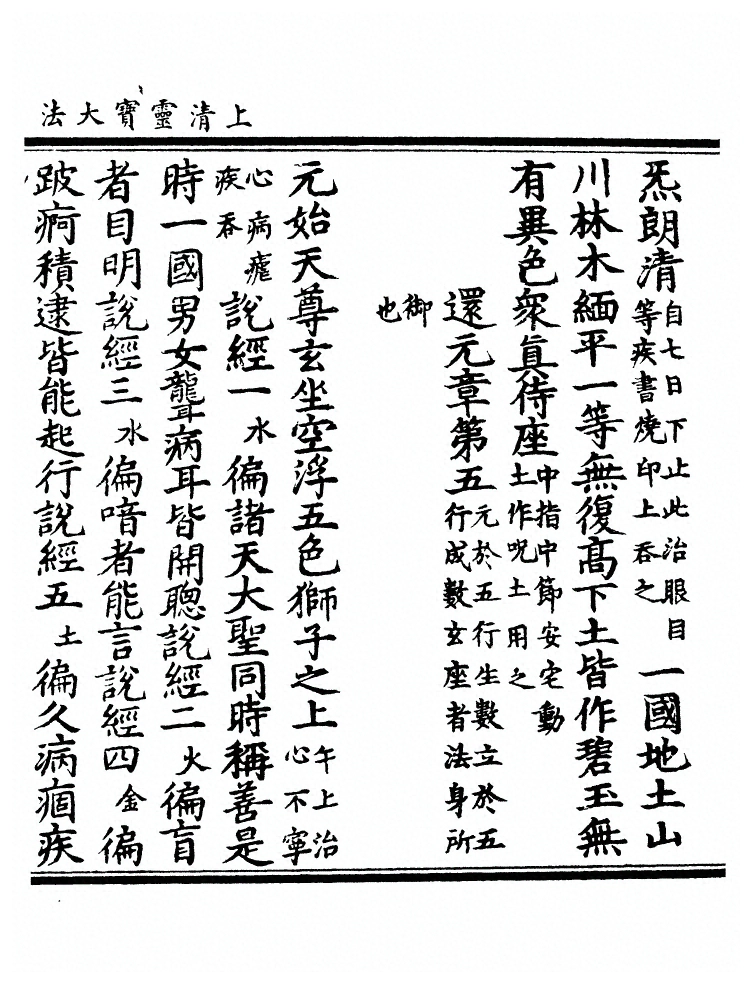 上清靈寶大法
炁朗清自七日下止此治眼目等疾書燒印上吞之一國地土山
川林木緬平一等無復高下土皆作碧玉無
有異色衆眞待座中指中節安宅動土作呪土用之
還元章第五元於五行生數立於五行成數玄座者法身所
御也
元始天尊玄坐空浮五色獅子之上午上治心不寧
心病瘧疾吞說經一水徧諸天大聖同時稱善是
時一國男女聾病耳皆開聰說經二火徧盲
者目明說經三水徧喑者能言說經四金徧
跛痾積逮皆能起行說經五土徧久病痼疾